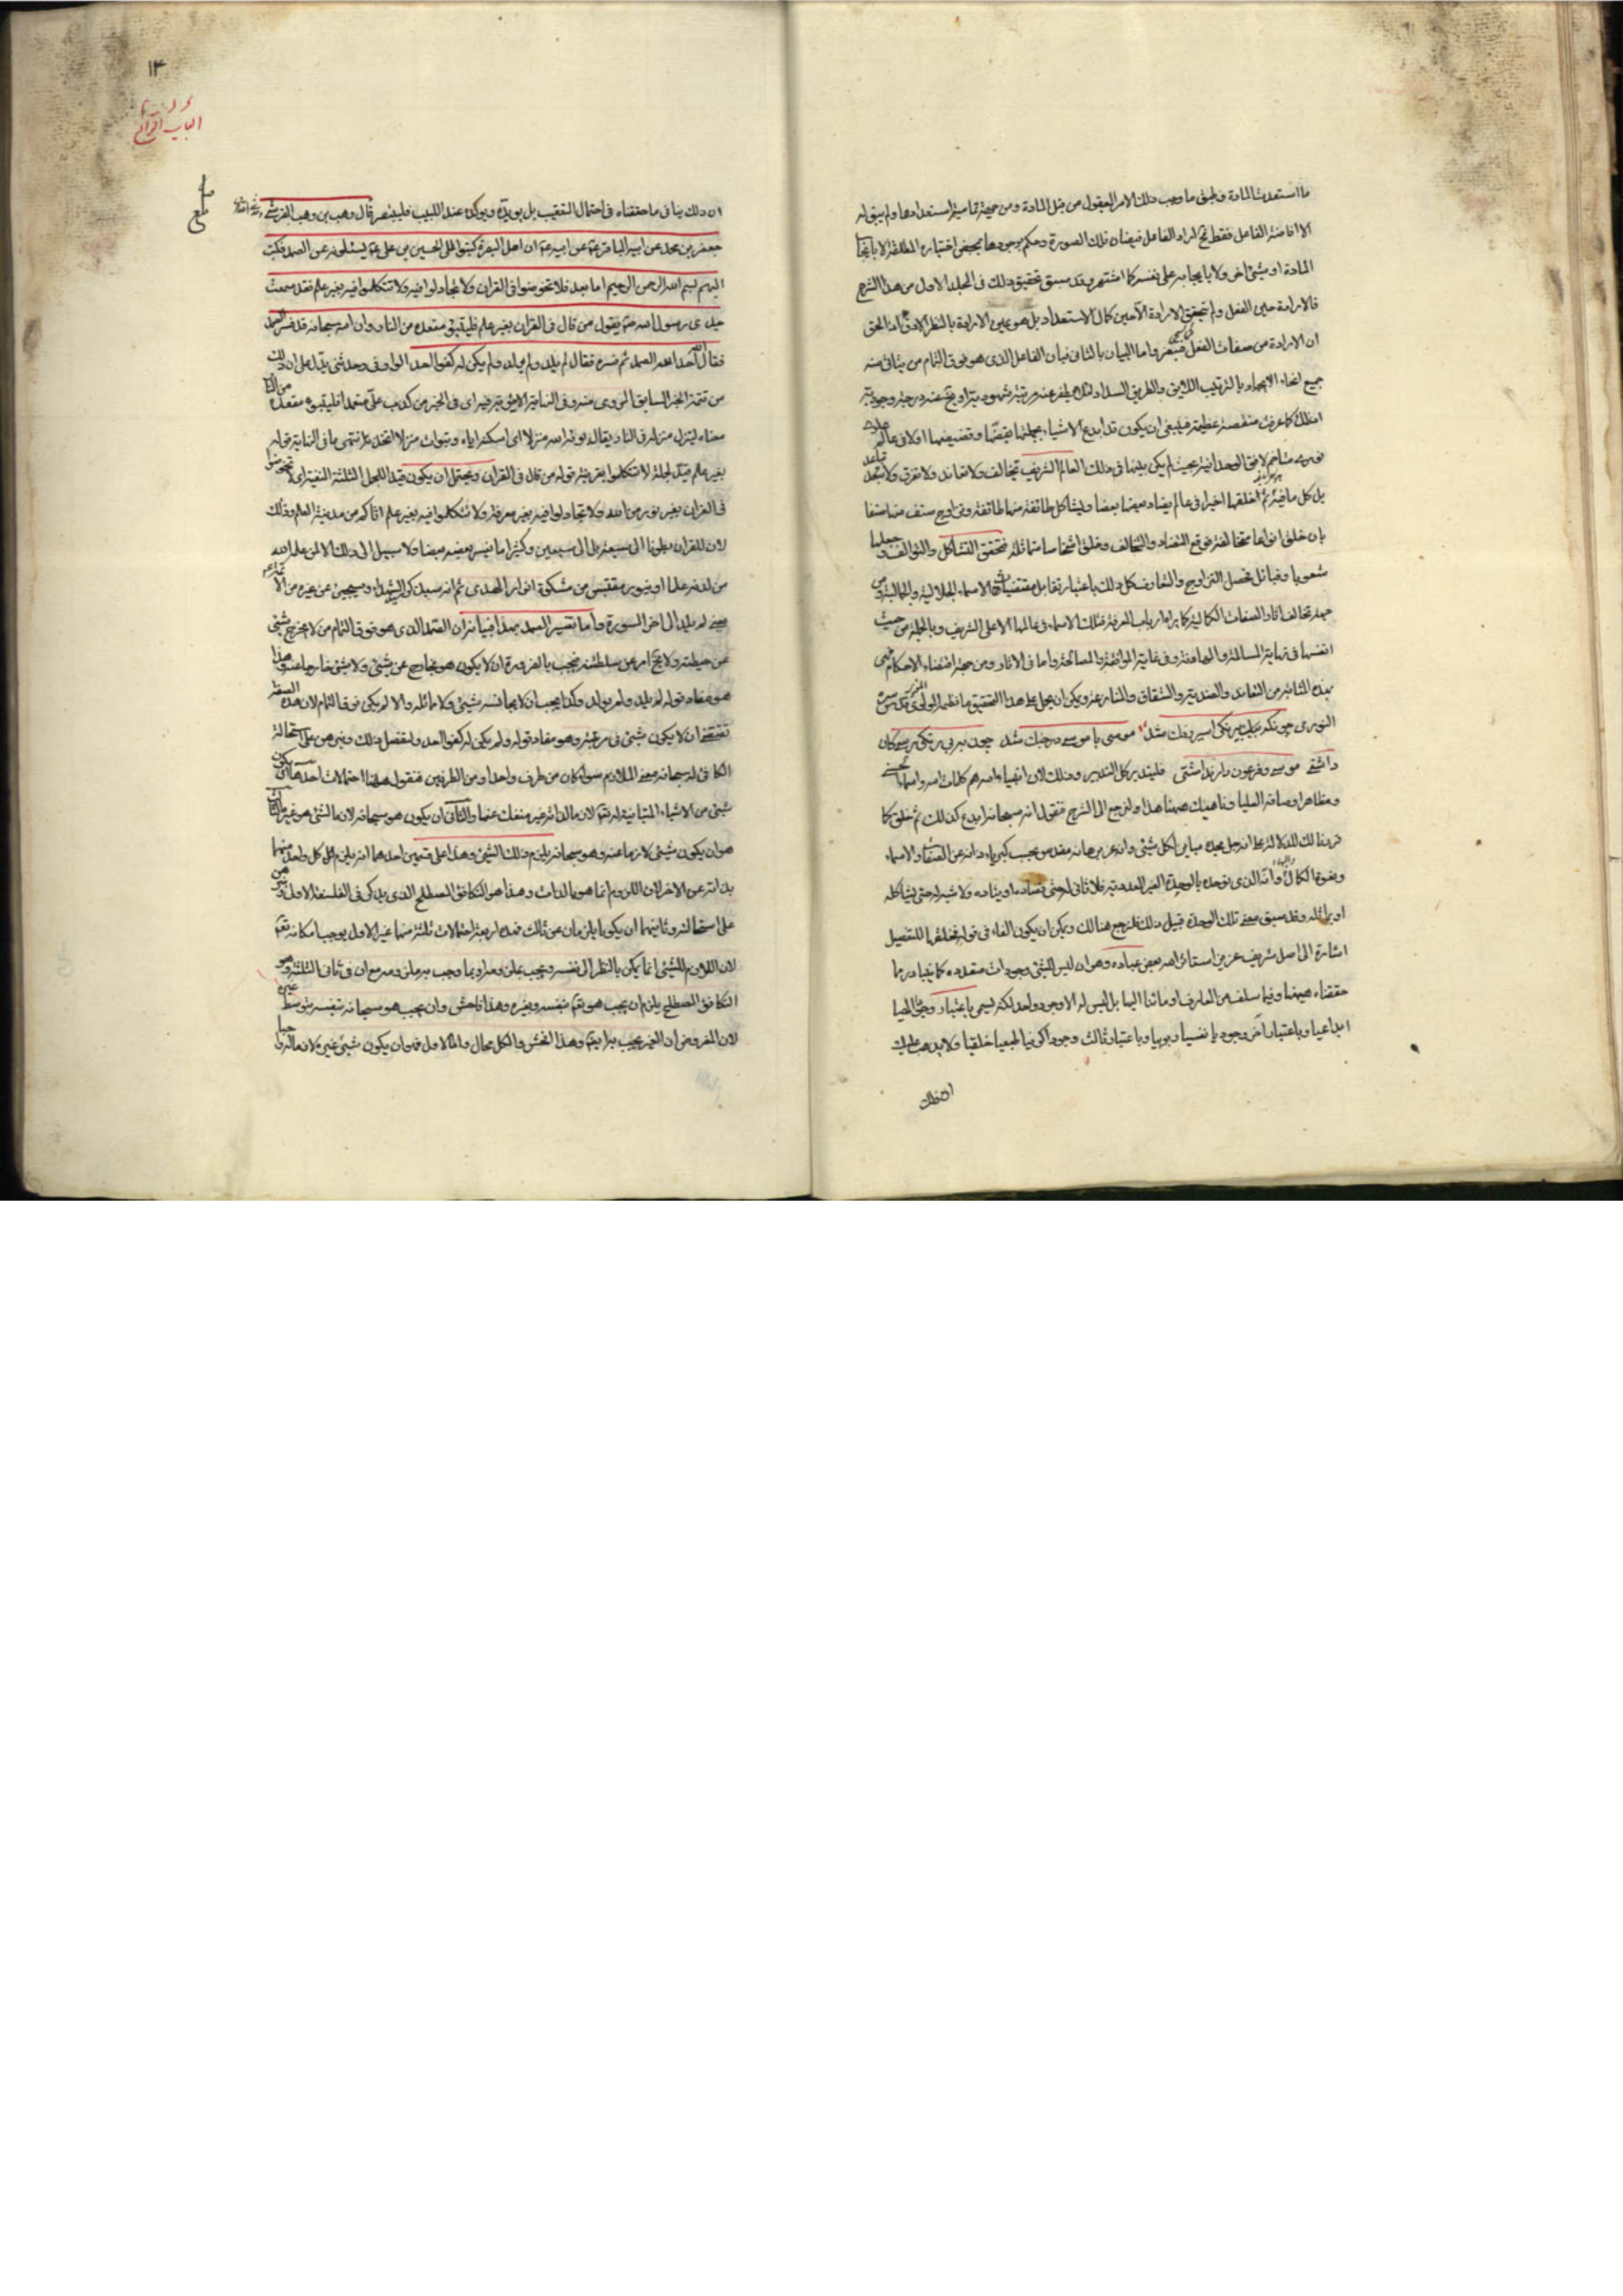 ما استعدت المادة وطبق ما وجب ذلك الامر المعقول من قبل المادة ومن جهة تمامية استعدادها ولم يبق له
الا افاضة الفاعل فقط فح لمراد الفاعل فيضان تلك الصورة وحكم بوجودها بمحض اختياره المطلقة لا بايجاب
المادة او شيء اخر ولا بايجابه على نفسه كما اشتهر وقد سبق تحقيق ذلك في المجلد الاول من هذا الشرح
فالارادة حين الفعل ولم تتحقق الارادة الا حين كمال الاستعداد بل هو عين الارادة بالنظر الادق اذ الحق
ان الارادة من صفات الفعل فتبصر واما البيان بالثاني فبان الفاعل الذي هو فوق التمام من يتأتى منه
جميع انحاء الايجاد بالترتيب اللايق والطريق السداد لئلا
اذ ذلك كما عرفت منقصة عظيمة فينبغي ان يكون قد ابدع الاشياء بجملتها بقضها وقضيضها اولا في عالم
نوري متاخم لافق الوحدانية بحيث لم يكن بينها في ذلك العالم الشريف تخالف ولا تعاند ولا تفرق ولا تباعد
بل كل ما فيه ثم اخلقها اخيرا في عالم يضاد بعضها بعضا ويشاكل طائفة منها طائفة وتزاوج صنف منها صنفا
بان خلق انواعا متخالفة فوقع التضاد والتخالف وخلق اشخاصا متماثلة فتحقق التشاكل والتوالف وجعلها
شعوبا وقبائل فحصل التزاوج والتعارف كل ذلك باعتبار تقابل مقتضيات الاسماء الجلالية والجمالية ومن
جهة تخالف اثار الصفات الكمالية كما يراه ارباب المعرفة فتلك الاسماء في عالمها الاعلى الشريف وبالجملة من حيث
انفسها في نهاية المسالمة والمهادنة وفي غاية الموافقة والمصالحة واما في الاثار ومن جهة اقتضاء الاحكام فهي
بهذه المثابة من التعاند والضدية والشقاق والمنازعة ويمكن ان يحمل على هذا التحقيق ما نظمه المولوي قدس سره
النوري چونكه بيرنكى اسير رنك شد موسى با موسى در جنك شد چون به بيرنكى رسى كان
داشتى موسى وفرعون دارند اشتى فليتدبر كل التدبر وذلك لان انبياء الله هم كلمات الله واسماء
ومظاهر اوصافه العليا وناهيك هيهنا هذا ولنرجع الى الشرح فنقول انه سبحانه ابدع كذلك ثم خلق كما
قررنا لك للدلالة على انه جل مجده مباين لكل شيء وانه عز برهانه مقدس بحسب كبرياء ذاته عن الصفات والاسماء
ونعوت الكمال وانه الذي توحد بالوحدة الغير العددية فلا ثاني له حتى يضاده او يناده ولا شبه له حتى يشاكله
او يماثله وقد سبق معنى تلك الوحدة قبيل ذلك فلنرجع هنالك ويمكن ان يكون الفاء في قوله فخلقها للتفصيل
اشارة الى اصل شريف عزيز استأثر الله بعض عباده وهو ان ليس للشيء وجودات متعددة كما يتبادر مما
حققناه هيهنا وفيما سلف من المعارف اومأنا اليها بل ليس له الا وجود واحد لكنه يسمى باعتبار وجودا الهيا
ابداعيا وباعتبار آخر وجودا نفسيا ربوبيا وباعتبار ثالث وجودا كونيا طبيعيا خلقيا ولا يذهب عليك
ان ذلك
١٣
ان ذلك ينافي ما حققناه في احتمال التعقيب بل يؤيده ويؤكده عند اللبيب فليتبصر قال وهب بن وهب القرشي
جعفر بن محمد عن ابيه الباقر عن ابيه ان اهل البصرة كتبوا الى الحسين بن علي يسئلونه عن الصمد فكتب
اليهم بسم الله الرحمن الرحيم اما بعد فلا تخوضوا في القران ولا تجادلوا فيه ولا تتكلموا فيه بغير علم فقد سمعت
جدي رسول الله يقول من قال في القران بغير علم فليتبوء مقعده من النار وان الله سبحانه قد فسر الصمد
فقال الله احد الله الصمد ثم فسره فقال لم يلد ولم يولد ولم يكن له كفوا احد الواو في وحدثني يدل على ان ذلك
من تتمة الخبر السابق المروي عنه وفي النهاية الاثيرية اي في الخبر من كذب علي متعمدا فليتبوء مقعده من النار
معناه لينزل منزله في النار يقال بوأه الله منزلا اي اسكنه اياه وتبوأت منزلا اتخذته انتهى ما في النهاية قوله
بغير علم قيد لجملة لا تتكلموا بقرينة قوله من قال في القران ويحتمل ان يكون قيدا للجمل الثلثة المنفية اي لا تخوضوا
في القران بغير نور من الله ولا تجادلوا فيه بغير معرفة ولا تتكلموا فيه بغير علم اتاكم من مدينة العلم وذلك
لان للقران بطونا الى سبعة بل الى سبعين وكثيرا ما يفسر بعضه بعضا ولا سبيل الى ذلك الا لمن علمه الله
من لدنه علما او بنور مقتبس من مشكوة انوار الهدى ثم انه سيذكر الشهداء وسيجيء عن غيره من الائمة
معنى لم يلد الى اخر السورة واما تفسير الصمد بهذا فبيانه ان الصمد الذي هو فوق التمام من لا يخرج شيء
عن حيطته ولا يخرج امر عن سلطنته فيجب بالضرورة ان لا يكون هو بخارج عن شيء ولا شيء خارجا عنه وهذا
هو مفاد قوله لم يلد ولم يولد وكذا يجب ان لا يجانسه شيء ولا يماثله والا لم يكن فوق التمام لان هذه الصفة
تقتضي ان لا يكون شيء في مرتبته وهو مفاد قوله ولم يكن له كفوا احد ولنفصل ذلك ونبرهن على استحالة
الكافئ له سبحانه بمعنى الملازم سواء كان من طرف واحد او من الطرفين فنقول هيهنا احتمالات احدها ان يكون
شيء من الاشياء المتباينة له تعالى لازما لذاته غير منفك عنها والثاني ان يكون هو سبحانه لازما لشيء هو غيره والثالث
هو ان يكون شيء لازما عنه وهو سبحانه يلزم ذلك الشيء وهذا على قسمين احدهما انه يلزم كل واحد منهما
بذاته عن الاخر لان اللزوم انما هو بالذات وهذا هو التكافؤ المصطلح الذي يذكر في الفلسفة الاولى ويبرهن
على استحالته وثانيهما ان يكونا يلزمان عن ثالث فهذه اربعة احتمالات ثلثة منها غير الاول يوجب امكانه تعالى
لان اللازم للشيء انما يمكن بالنظر الى نفسه ويجب بملزومه او بما وجب به ملزومه مع ان في ثاني الثلثة وهو
التكافؤ المصطلح يلزم ان يجب هو تعالى بنفسه وبغيره وهذا فاحش وان يجب هو سبحانه بنفسه بتوسط غيره
لان المفروض ان الغير يجب به ايضا وهذا افحش والكل محال واما الاول فهو ان يكون شيء غيره لازما له واجبا